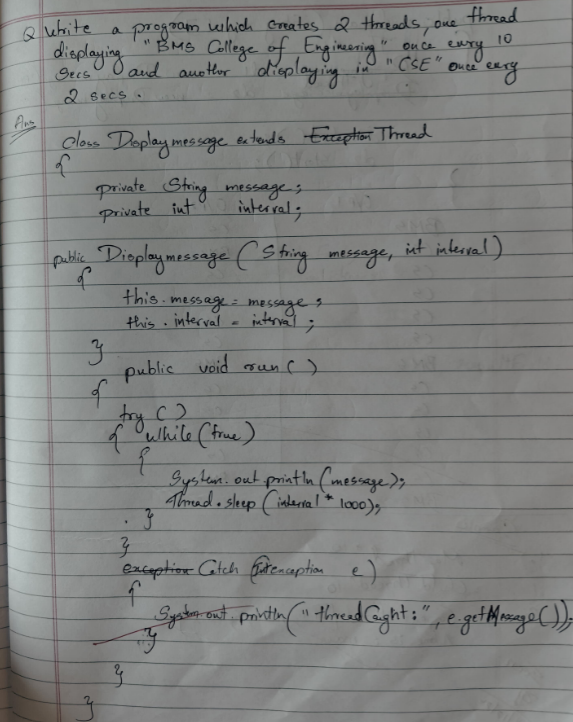 Q Write a program which creates 2 threads, one thread
displaying "BMS College of Engineering" once every 10
Secs and another displaying in "CSE" once every
2 secs.
Ans
Class Displaymessage extends Exception Thread
{
private String message;
private int interval;
public Displaymessage (String message, int interval)
{
this.message = message;
this.interval = interval;
}
public void run()
{
try ()
{ while (true)
{
System.out.println (message);
Thread.sleep (interval * 1000);
}
}
exception Catch ( e)
{
System.out.println ("thread Caught:", e.getMessage());
}
}
}